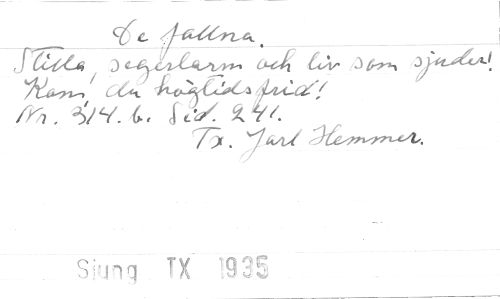 De fallna.
Stilla, segerlarm och liv som sjuder!
Kom, du högtidsfrid!
Nr. 314. b. Sid. 241.
Tx. Jarl Hemmer.
Sjung TX 1935